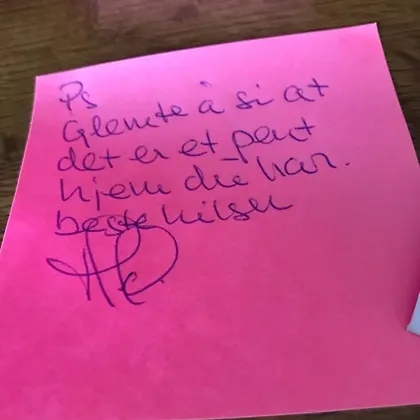 Ps
Glemte å si at
det er et pent
hjem du har.
beste hilsen